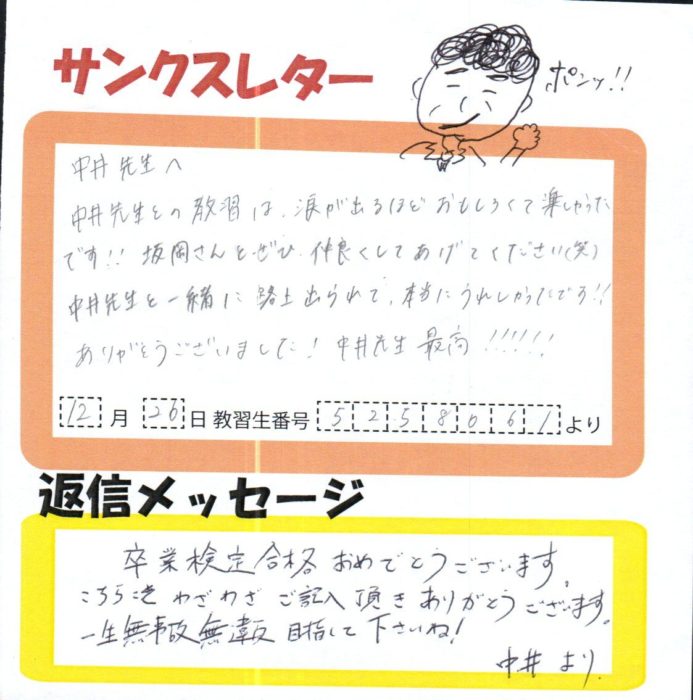 サンクスレター
ポンッ!!
中井先生へ
中井先生との教習は、涙が出るほどおもしろくて楽しかった
です!! 坂岡さんとぜひ仲良くしてあげてください(笑)
中井先生と一緒に路上出られて、本当にうれしかったです!!
ありがとうございました! 中井先生最高 !!!!!!
12月26日 教習生番号 5258061より
返信メッセージ
卒業検定合格おめでとうございます。
こちらこそわざわざご記入頂きありがとうございます。
一生無事故無違反目指して下さいね!
中井より